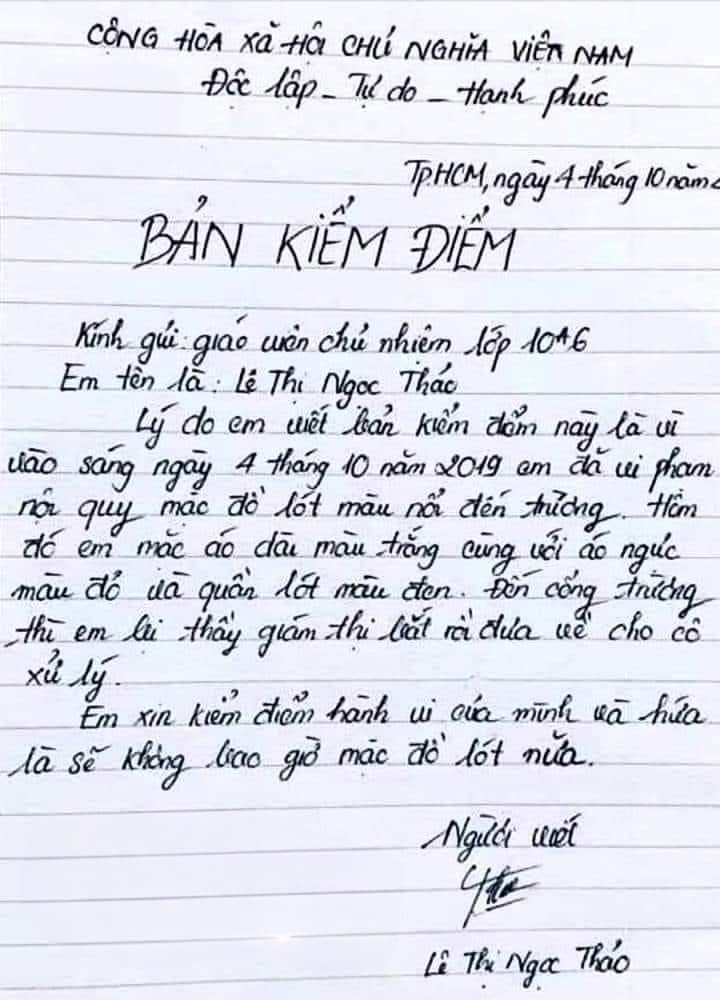 CỘNG HÒA XÃ HỘI CHỦ NGHĨA VIỆT NAM
Độc lập - Tự do - Hạnh phúc
TP.HCM, ngày 4 tháng 10 năm
BẢN KIỂM ĐIỂM
Kính gửi: giáo viên chủ nhiệm lớp 10A6
Em tên là: Lê Thị Ngọc Thảo
Lý do em viết bản kiểm điểm này là vì
vào sáng ngày 4 tháng 10 năm 2019 em đã vi phạm
nội quy mặc đồ lót màu nổi đến trường. Hôm
đó em mặc áo dài màu trắng cùng với áo ngực
màu đỏ và quần lót màu đen. Đến cổng trường
thì em bị thầy giám thị bắt rồi đưa về cho cô
xử lý.
Em xin kiểm điểm hành vi của mình và hứa
là sẽ không bao giờ mặc đồ lót nữa.
Người viết
Lê Thị Ngọc Thảo